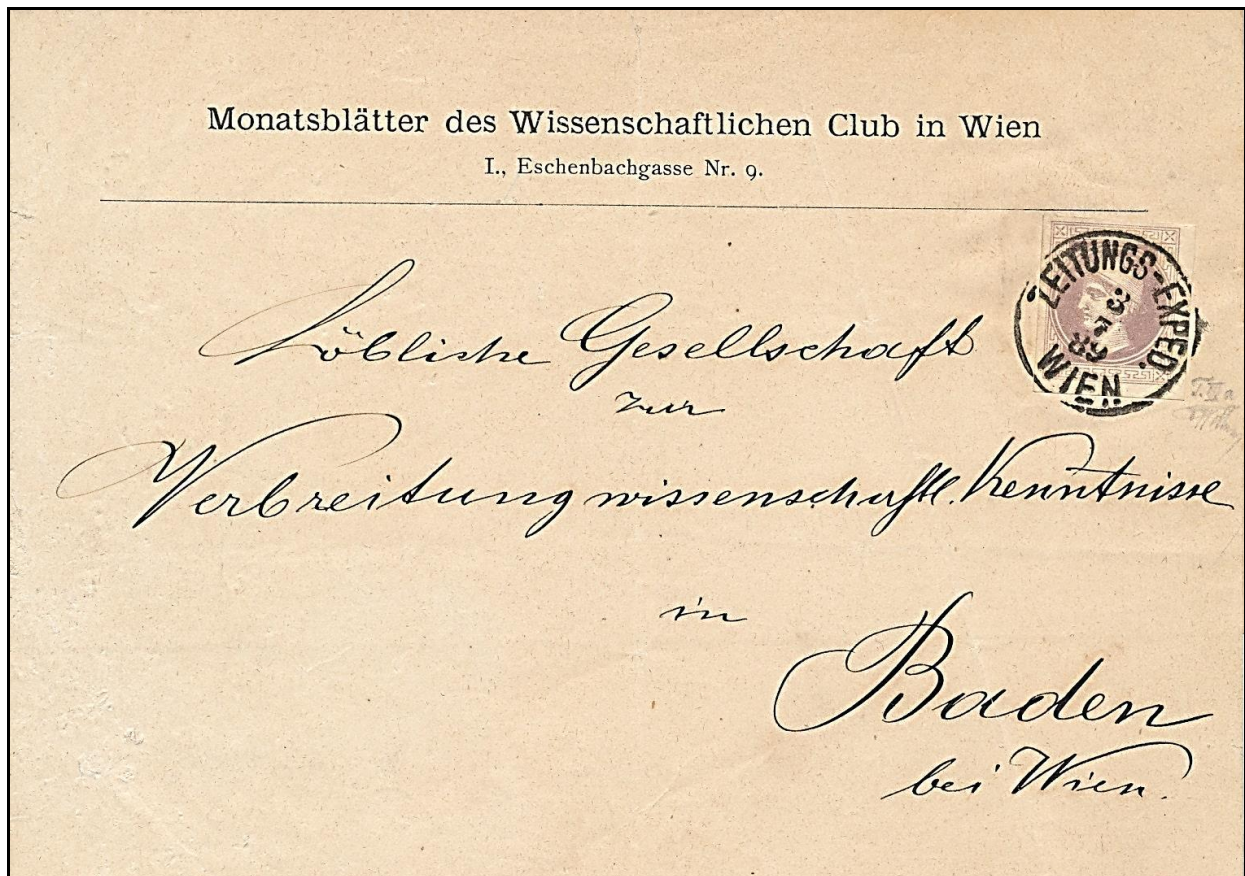 Monatsblätter des Wissenschaftlichen Club in Wien
I., Eschenbachgasse Nr. 9.
ZEITUNGS-EXPED.
3
89
WIEN
Löbliche Gesellschaft
zur
Verbreitung wissenschaftl. Kenntnisse
in
Baden
bei Wien.